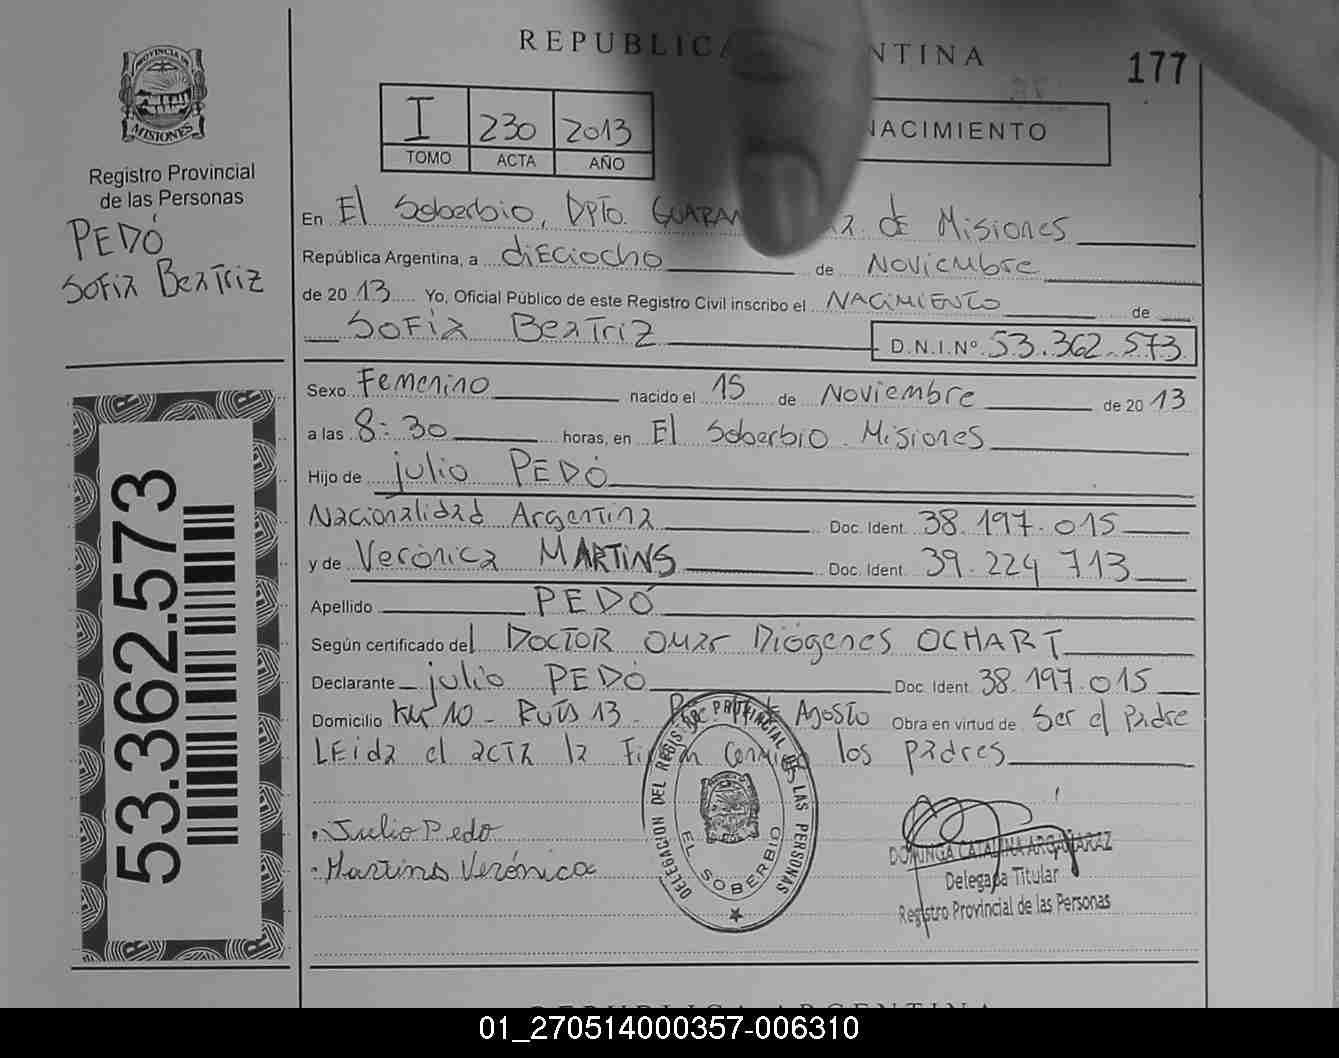 REPUBLICA ARGENTINA
177
PROVINCIA DE
MISIONES
Registro Provincial
de las Personas
PEDÓ
Sofia Beatriz
53.362.573
I 230 2013
TOMO ACTA AÑO
NACIMIENTO
En El Soberbio, Dpto. GUARAN de Misiones
República Argentina, a dieciocho de Noviembre
de 2013 Yo, Oficial Público de este Registro Civil inscribo el NACIMIENTO de
SOFÍA BEATRIZ D.N.I.Nº 53.362.573
Sexo Femenino nacido el 15 de Noviembre de 2013
a las 8:30 horas, en El Soberbio. Misiones
Hijo de julio PEDÓ
Nacionalidad Argentina Doc. Ident. 38.197.015
y de Verónica MARTINS Doc. Ident. 39.224 713
Apellido PEDÓ
Según certificado del DOCTOR Omar Diógenes OCHART
Declarante julio PEDÓ Doc. Ident. 38.197.015
Domicilio KM 10 - Ruta 13 - Agosto Obra en virtud de Ser el Padre
LEida el acta la Firman Conmigo los padres
Julio Pedo
Martins Verónica
DELEGACION DEL REGISTRO PROVINCIAL DE LAS PERSONAS
EL SOBERBIO
DOMINGA CATALINA ARGAÑARAZ
Delegada Titular
Registro Provincial de las Personas
REPUBLICA ARGENTINA
01_270514000357-006310